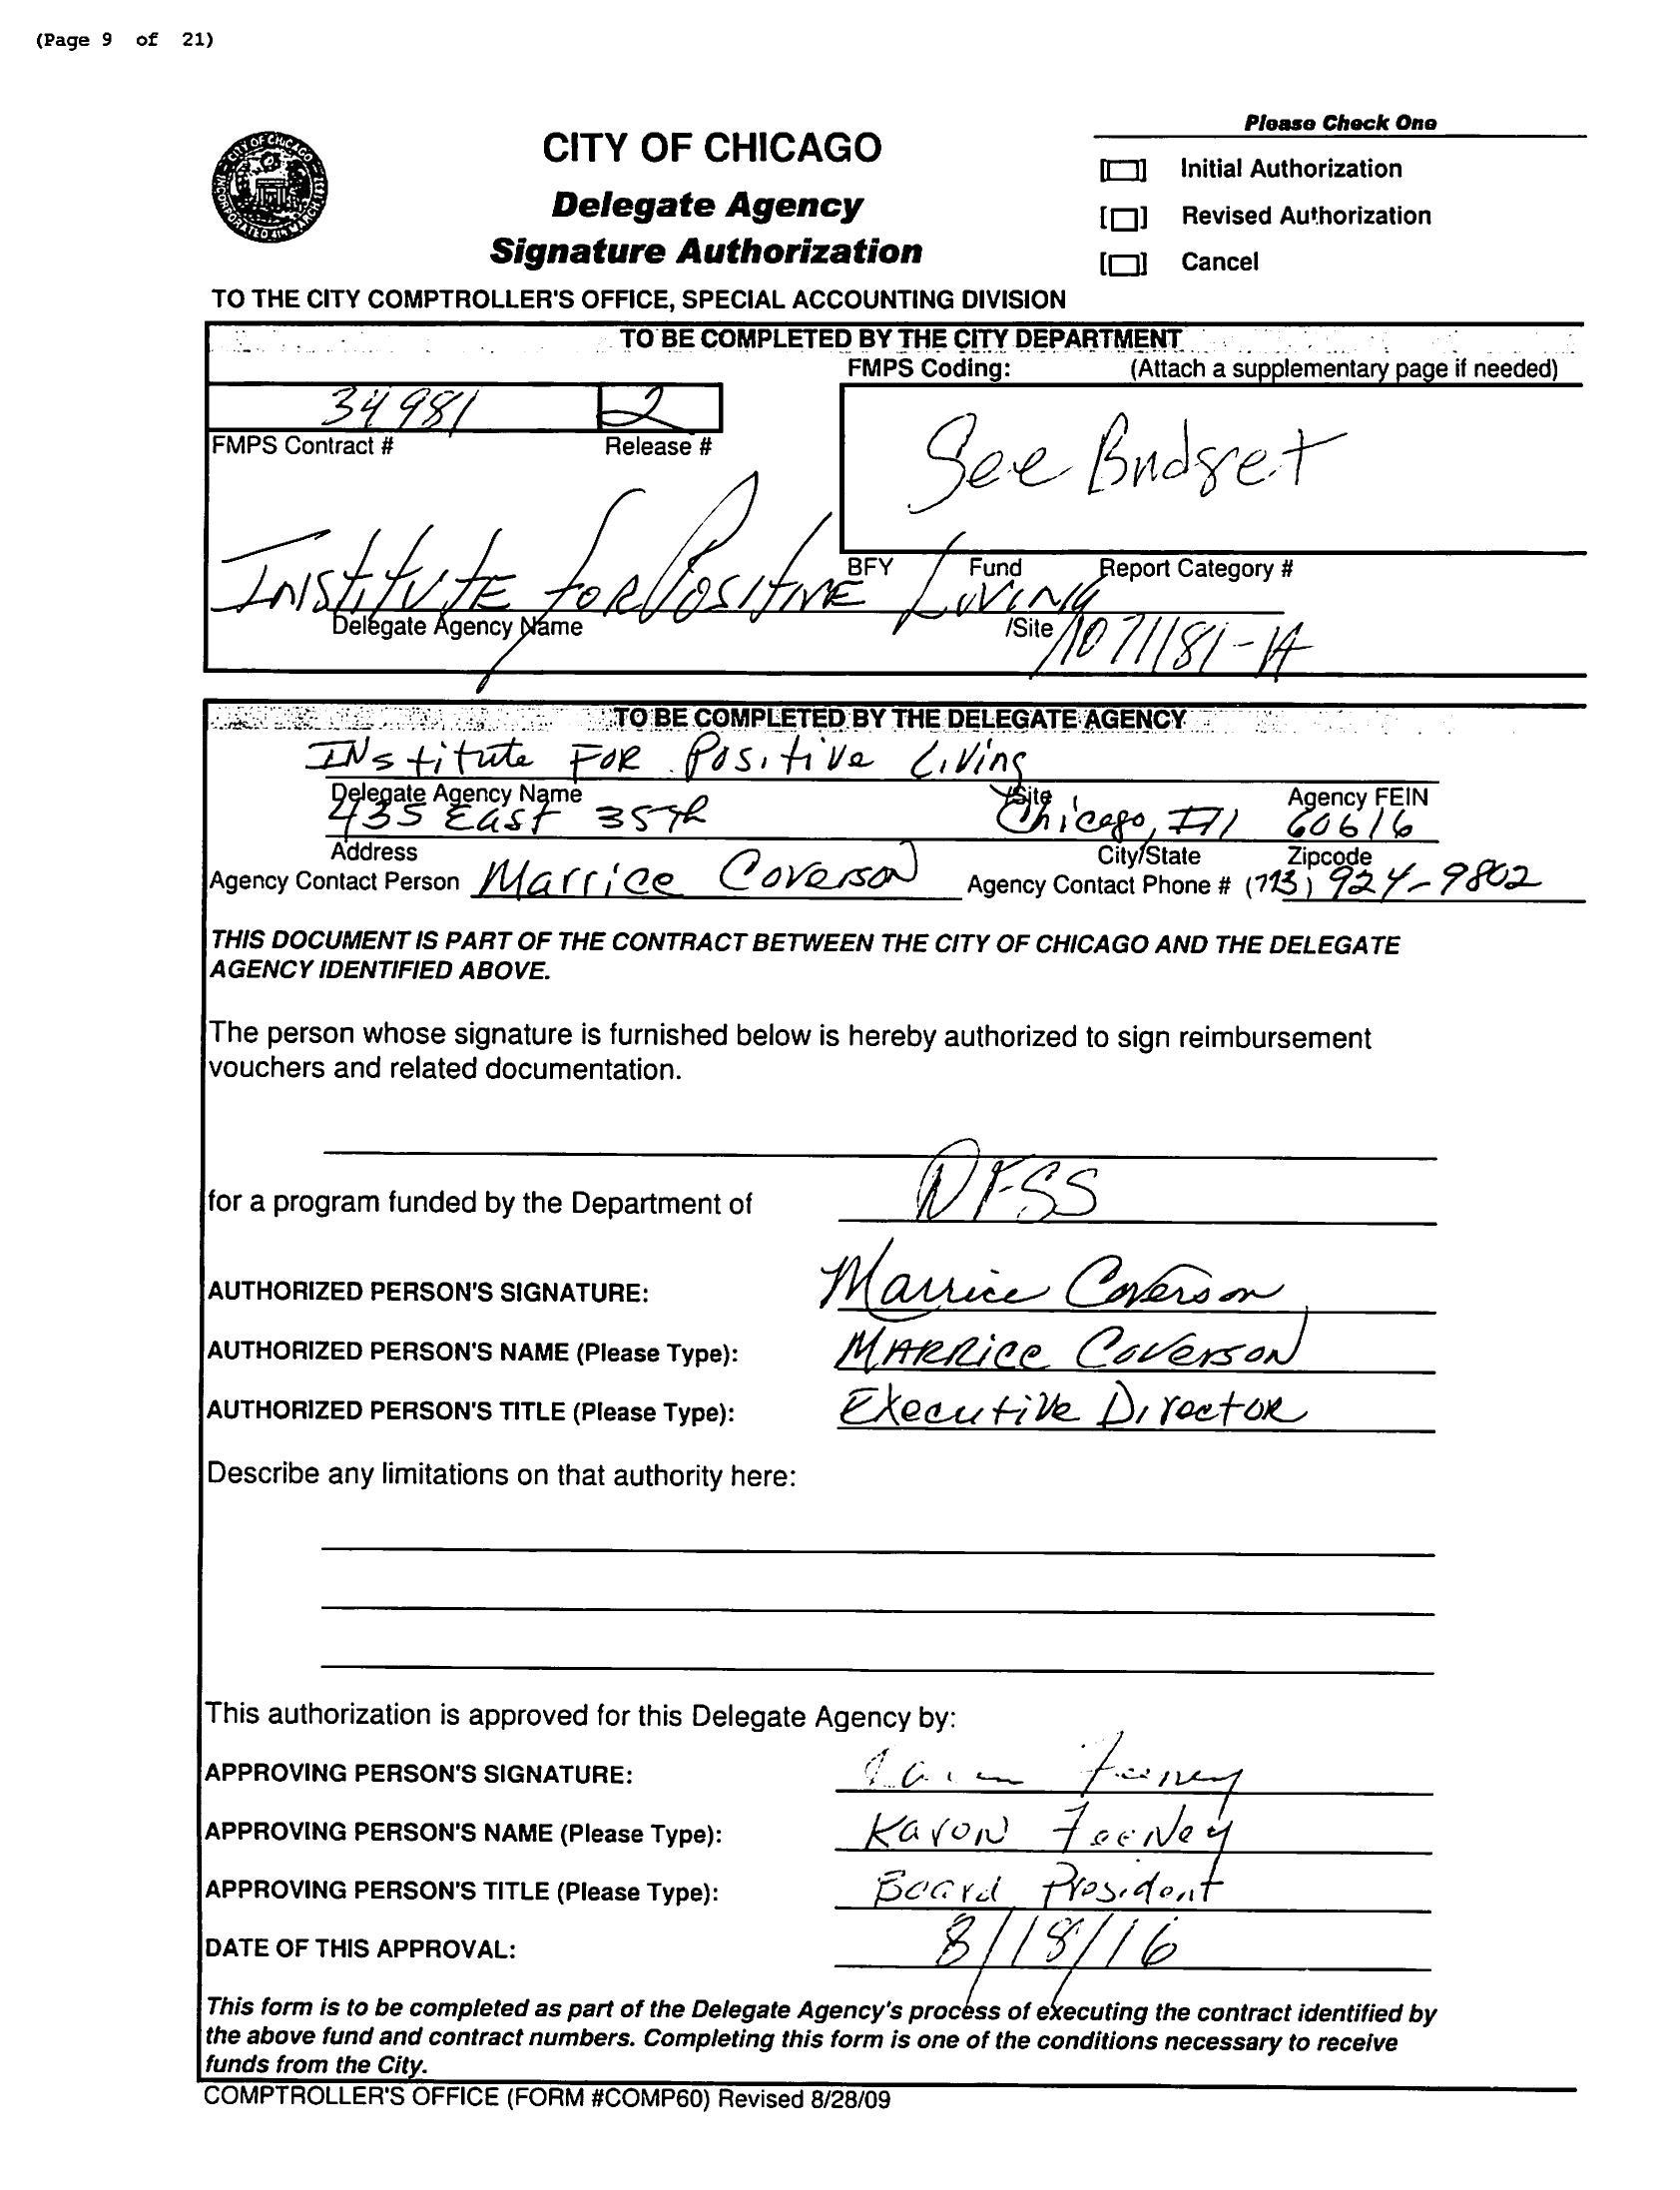 (Page 9 of 21)
Please Check One
CITY OF CHICAGO
Delegate Agency
Signature Authorization
[ ] Initial Authorization
[ ] Revised Authorization
[ ] Cancel
TO THE CITY COMPTROLLER'S OFFICE, SPECIAL ACCOUNTING DIVISION
TO BE COMPLETED BY THE CITY DEPARTMENT
FMPS Coding: (Attach a supplementary page if needed)
34981 2
FMPS Contract # Release #
See Budget
BFY Fund Report Category #
Institute for Positive Living
Delegate Agency Name /Site
1071181-A
TO BE COMPLETED BY THE DELEGATE AGENCY
INstitute FOR Positive Living
Delegate Agency Name /Site Agency FEIN
435 East 35th Chicago, Ill 60616
Address City/State Zipcode
Agency Contact Person Marrice Coverson Agency Contact Phone # (773) 924-9802
THIS DOCUMENT IS PART OF THE CONTRACT BETWEEN THE CITY OF CHICAGO AND THE DELEGATE
AGENCY IDENTIFIED ABOVE.
The person whose signature is furnished below is hereby authorized to sign reimbursement
vouchers and related documentation.
for a program funded by the Department of DFSS
AUTHORIZED PERSON'S SIGNATURE: Marrice Coverson
AUTHORIZED PERSON'S NAME (Please Type): MARRice Coverson
AUTHORIZED PERSON'S TITLE (Please Type): Executive Director
Describe any limitations on that authority here:
This authorization is approved for this Delegate Agency by:
APPROVING PERSON'S SIGNATURE: Feeney
APPROVING PERSON'S NAME (Please Type): Karen Feeney
APPROVING PERSON'S TITLE (Please Type): Board President
DATE OF THIS APPROVAL: 8/18/16
This form is to be completed as part of the Delegate Agency's process of executing the contract identified by
the above fund and contract numbers. Completing this form is one of the conditions necessary to receive
funds from the City.
COMPTROLLER'S OFFICE (FORM #COMP60) Revised 8/28/09